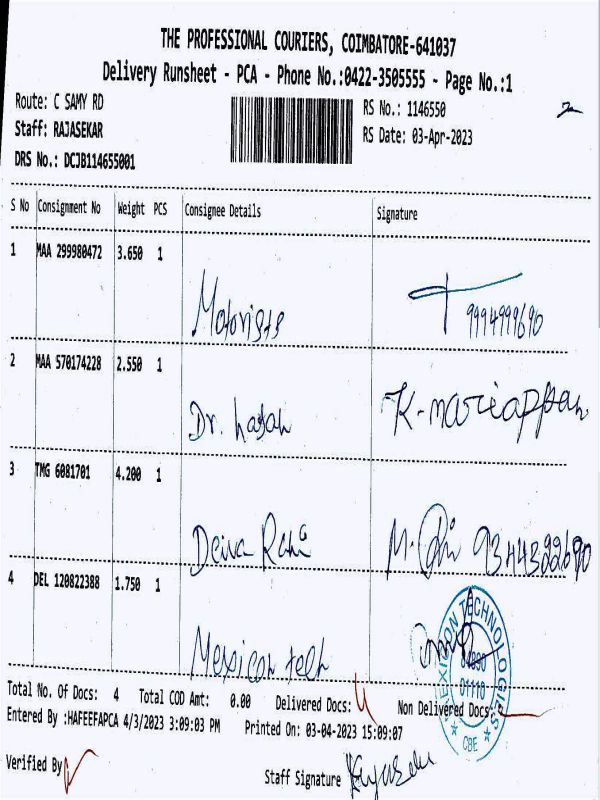 THE PROFESSIONAL COURIERS, COIMBATORE-641037
Delivery Runsheet - PCA - Phone No.:0422-3505555 - Page No.:1
Route: C SAMY RD
RS No.: 1146550
Staff: RAJASEKAR
RS Date: 03-Apr-2023
DRS No.: DCJB114655001
S No Consignment No Weight PCS Consignee Details Signature
1 MAA 299980472 3.650 1
Motorists 9994999690
2 MAA 570174228 2.550 1
Dr. K-mariappan
3 TMG 6081701 4.200 1
Deiva Rani M. 9344322690
4 DEL 120822388 1.750 1
Mexicon tech
MEXICON TECHNOLOGIES
CBE
Total No. Of Docs: 4 Total COD Amt: 0.00 Delivered Docs: 4 Non Delivered Docs:
Entered By :HAFEEFAPCA 4/3/2023 3:09:03 PM Printed On: 03-04-2023 15:09:07
Verified By
Staff Signature